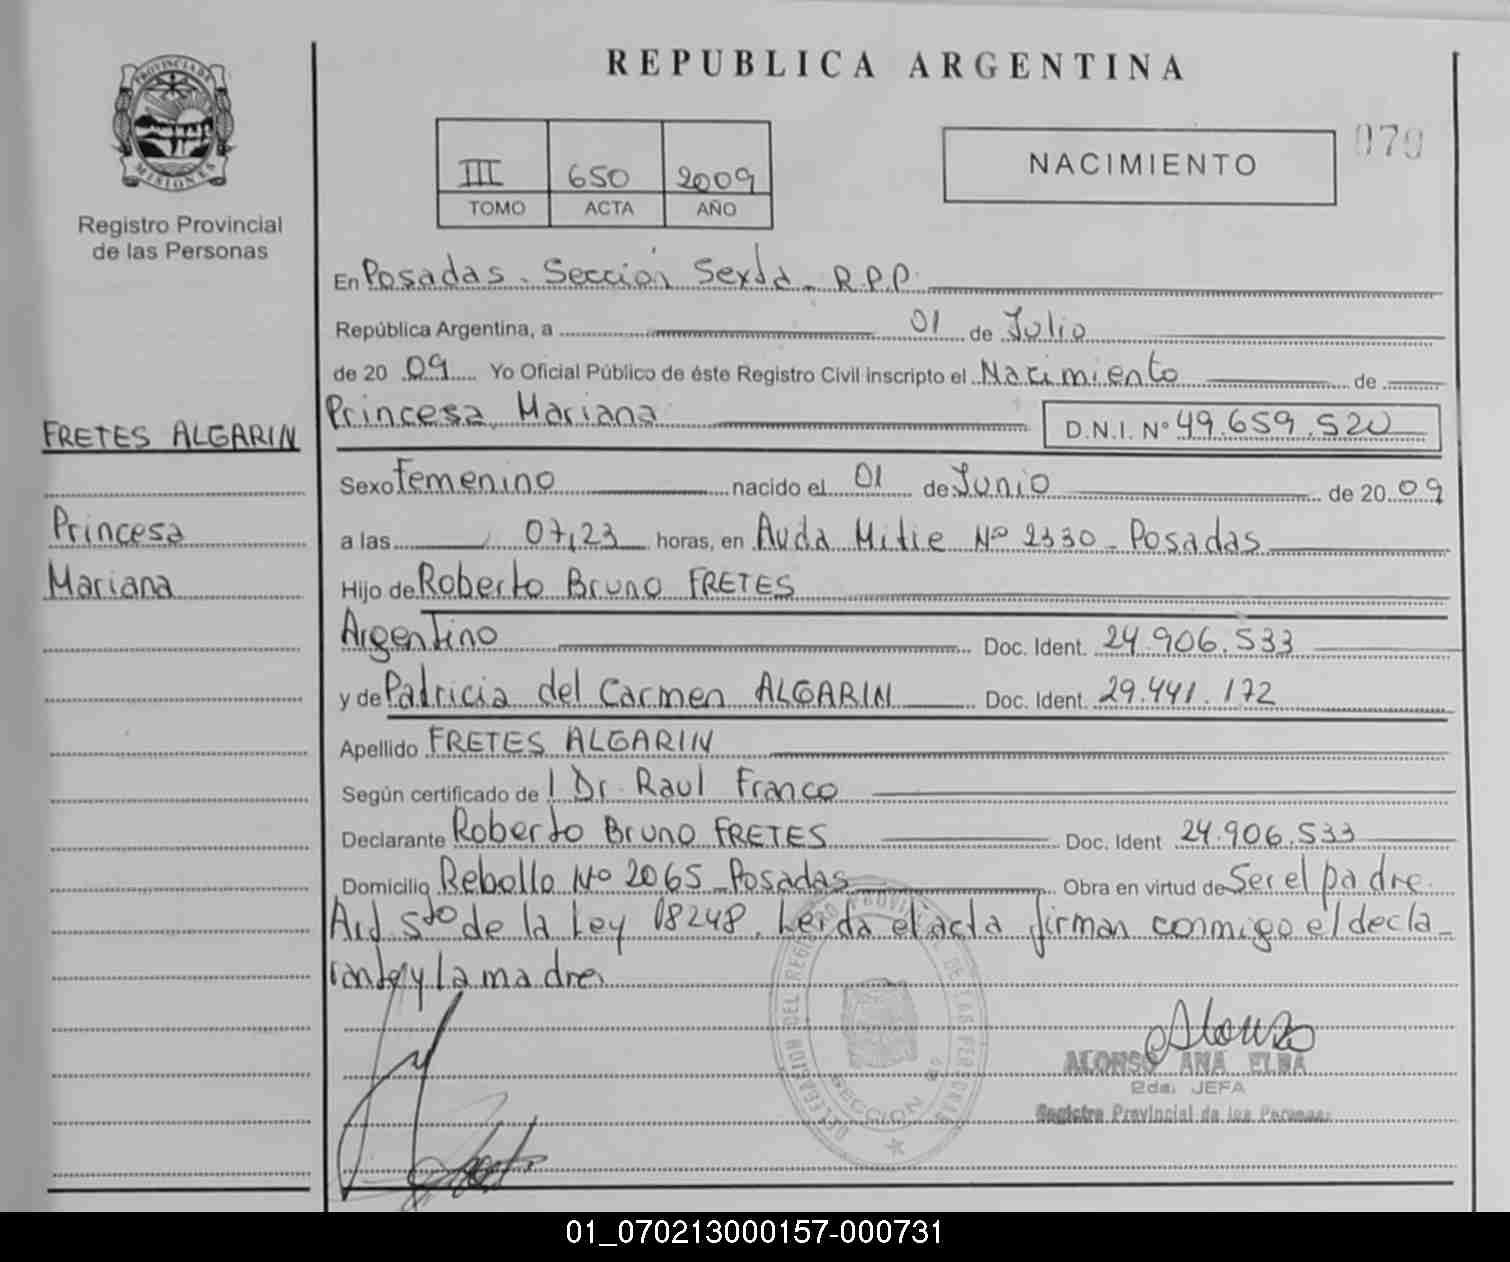 REPUBLICA ARGENTINA
PROVINCIA DE
MISIONES
Registro Provincial
de las Personas
III 650 2009
TOMO ACTA AÑO
NACIMIENTO
070
En Posadas. Sección Sexta - R.P.P.
República Argentina, a 01 de Julio
de 20 09 Yo Oficial Público de éste Registro Civil inscripto el Nacimiento de
Princesa Mariana D.N.I. Nº 49.659.520
FRETES ALGARIN
Princesa
Mariana
Sexo Femenino nacido el 01 de Junio de 20 09
a las 07,23 horas, en Avda Mitre Nº 2330 - Posadas
Hijo de Roberto Bruno FRETES
Argentino Doc. Ident. 24.906.533
y de Patricia del Carmen ALGARIN Doc. Ident. 29.441.172
Apellido FRETES ALGARIN
Según certificado de l Dr. Raul Franco
Declarante Roberto Bruno FRETES Doc. Ident 24.906.533
Domicilio Rebollo Nº 2065 - Posadas Obra en virtud de Ser el padre.
Art 5to de la Ley 18248. Leida el acta firman conmigo el decla-
rante y la madre.
DELEGACION DEL REGISTRO PROVINCIAL DE LAS PERSONAS
SECCION 6ª
Alonso
ALONSO ANA ELBA
2da. JEFA
Registro Provincial de las Personas
01_070213000157-000731